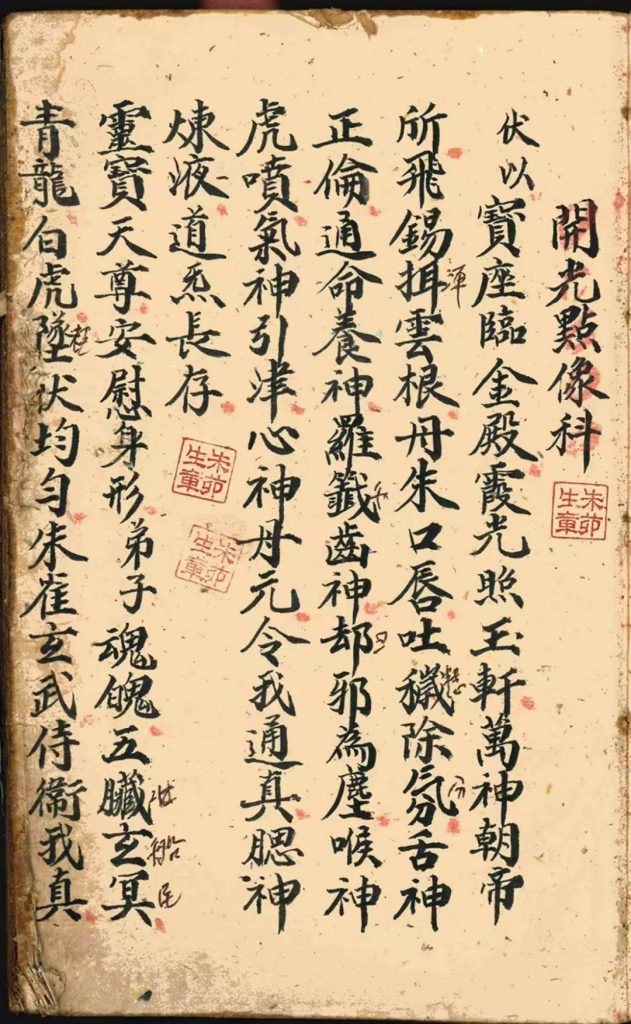 開光點像科
伏以寶座臨金殿霞光照玉軒萬神朝帝
所飛錫雲根丹朱口唇吐穢除氛舌神
正倫通命養神羅籤齒神却邪為塵喉神
虎噴氣神引津心神丹元令我通真腮神
煉液道炁長存
靈寶天尊安慰身形弟子魂魄五臟玄冥
青龍白虎墜伏均勻朱雀玄武侍衛我真